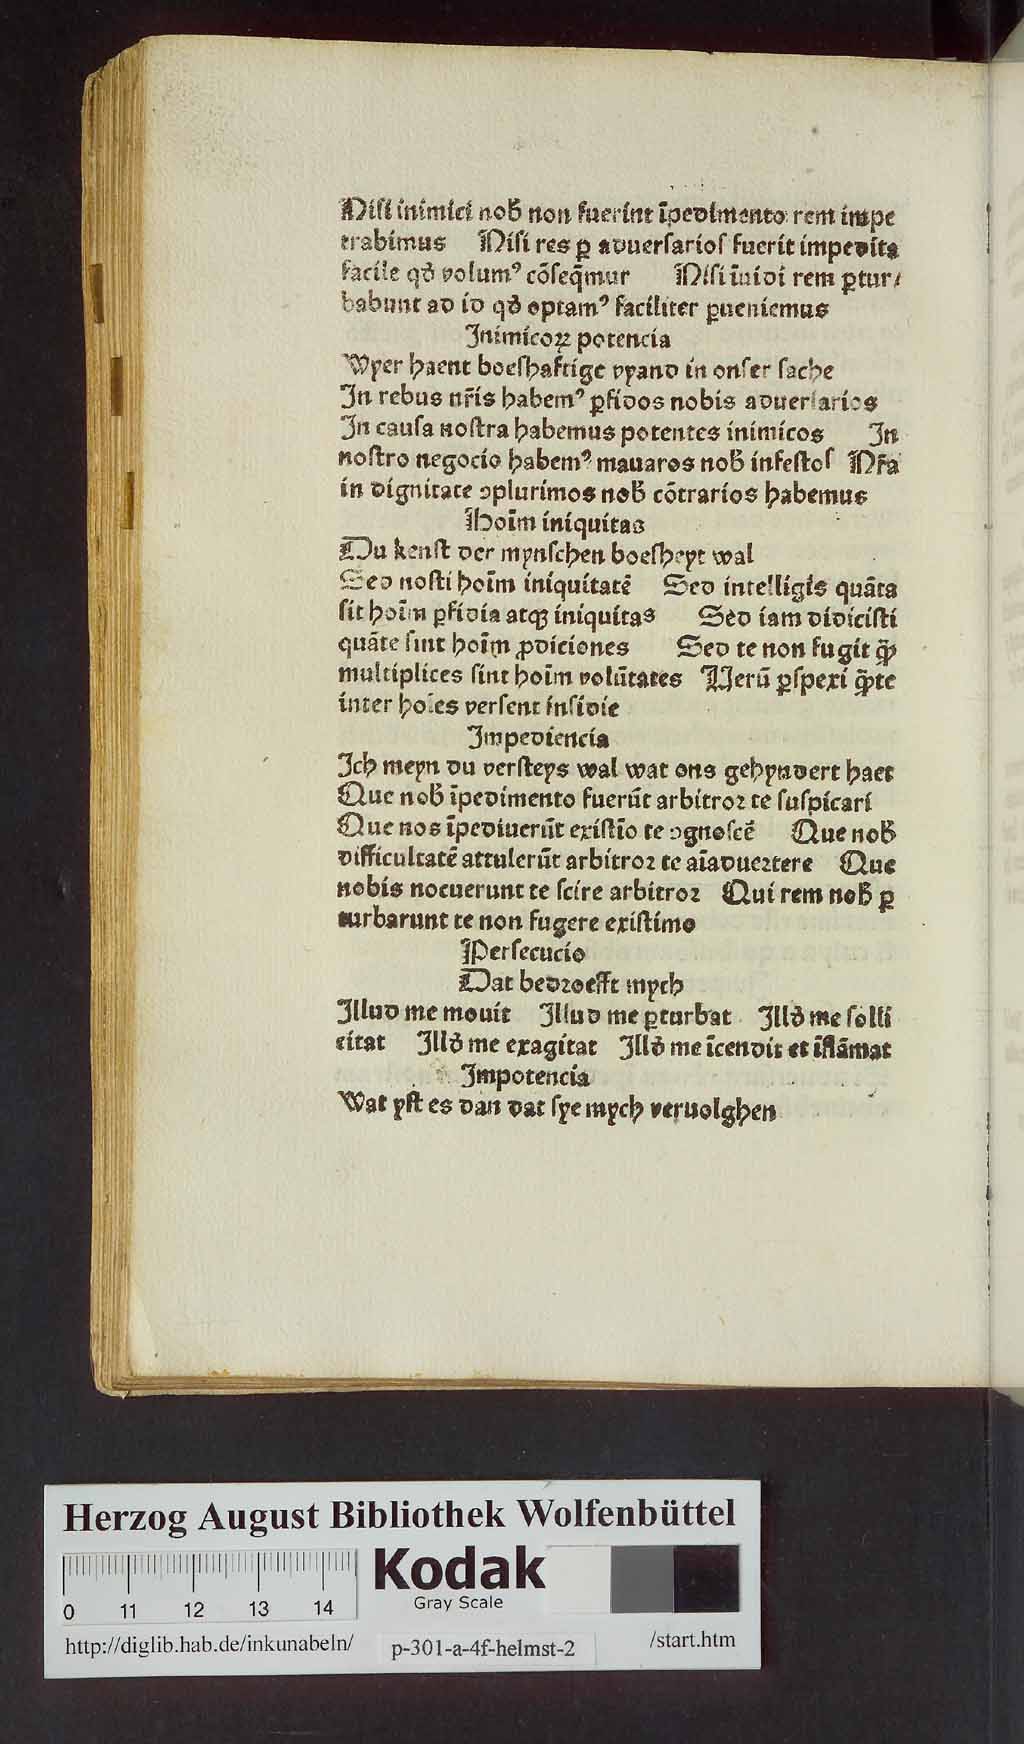 Nisi inimici nob̄ non fuerint ĩpedimento rem impe
trabimus Nisi res ꝑ aduersarios fuerit impedita
facile qd̄ volumꝰ cõseq̄mur Nisi ĩuidi rem ꝑtur/
babunt ad id qd̄ optamꝰ faciliter ꝑueniemus
Inimicoꝝ potencia
Wyer haent boeshaftige vyand in onser sache
In rebus nr̃is habemꝰ ꝑfidos nobis aduersarios
In causa nostra habemus potentes inimicos In
nostro negocio habemꝰ mauaros nob̄ infestos Nr̃a
in dignitate ꝯplurimos nob̄ cõtrarios habemus
Hoĩm iniquitas
Du kenst der mynschen boesheyt wal
Sed nosti hoĩm iniquitatẽ Sed intelligis quãta
sit hoĩm ꝑfidia atqꝫ iniquitas Sed iam didicisti
quãte sint hoĩm ꝓdiciones Sed te non fugit q̄ꝫ
multiplices sint hoĩm volũtates Uerũ ꝑspexi q̄ꝫte
inter hoĩes versent insidie
Impediencia
Ich meyn du versteys wal wat ons gehyndert haet
Que nob̄ ĩpedimento fuerũt arbitror te suspicari
Que nos ĩpediuerũt existĩo te ꝯgnoscẽ Que nob̄
difficultatẽ attulerũt arbitror te aĩaduertere Que
nobis nocuerunt te scire arbitror Qui rem nob̄ ꝑ
turbarunt te non fugere existimo
Persecucio
Dat bedroefft mych
Illud me mouit Illud me ꝑturbat Illd̄ me solli
citat Illd̄ me exagitat Illd̄ me ĩcendit et ĩflãmat
Impotencia
Wat yst es dan dat sye mych veruolghen
Herzog August Bibliothek Wolfenbüttel
Kodak
Gray Scale
0 11 12 13 14
http://diglib.hab.de/inkunabeln/ p-301-a-4f-helmst-2 /start.htm